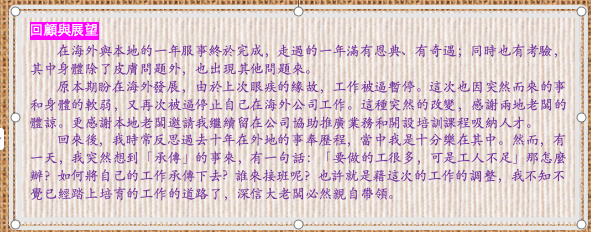 回顧與展望
在海外與本地的一年服事終於完成，走過的一年滿有恩典、有奇遇；同時也有考驗，
其中身體除了皮膚問題外，也出現其他問題來。
原本期盼在海外發展，由於上次眼疾的緣故，工作被逼暫停。這次也因突然而來的事
和身體的軟弱，又再次被逼停止自己在海外公司工作。這種突然的改變，感謝兩地老闆的
體諒。更感謝本地老闆邀請我繼續留在公司協助推廣業務和開設培訓課程吸納人才。
回來後，我時常反思過去十年在外地的事奉歷程，當中我是十分樂在其中。然而，有
一天，我突然想到「承傳」的事來，有一句話：「要做的工很多，可是工人不足」那怎麼
辦？如何將自己的工作承傳下去？誰來接班呢？也許就是藉這次的工作的調整，我不知不
覺已經踏上培育的工作的道路了，深信大老闆必然親自帶領。